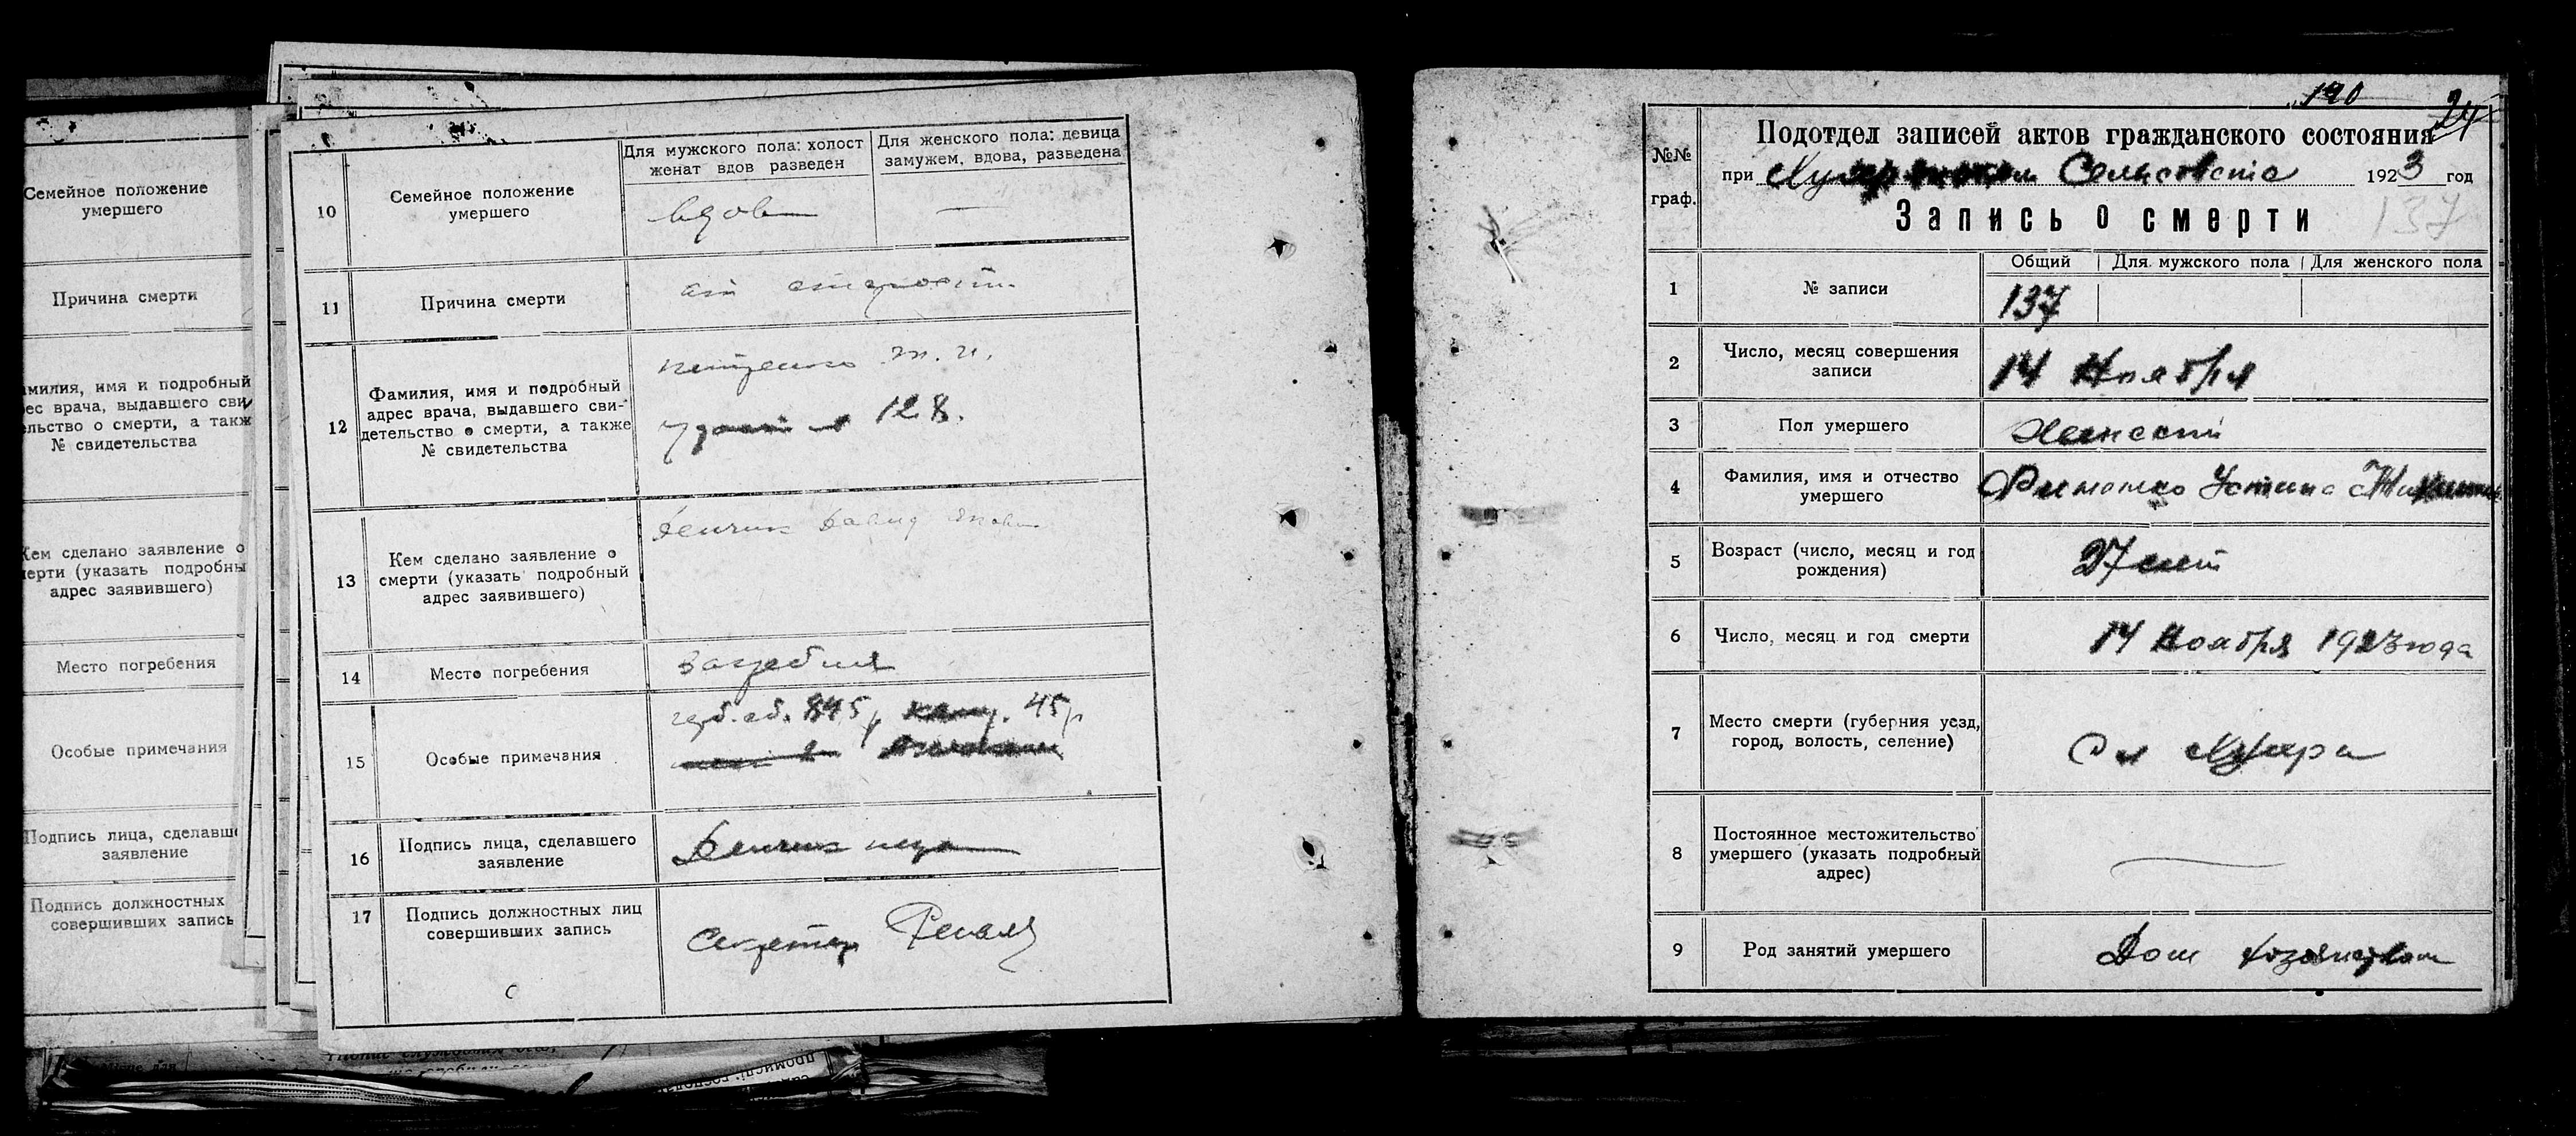 Семейное положение
умершего
Причина смерти
амилия, имя и подробный
ес врача, выдавшего сви
ельство о смерти, а такж
№ свидетельства
Кем сделано заявление о
ерти (указать подробны
адрес заявившего)
Место погребения
Особые примечания
Подпись лица, сделавше
заявление
Подпись должностных
совершивших запись
10
Семейное положение
умершего
Для мужского пола: холост
женат вдов разведен
Для женского пола: девица
замужем, вдова, разведена
вдов
11
Причина смерти
от старости
12
Фамилия, имя и подробный
адрес врача, выдавшего сви-
детельство о смерти, а также
№ свидетельства
128.
13
Кем сделано заявление о
смерти (указать подробный
адрес заявившего)
14
Место погребения
15
Особые примечания
герб. сб. 845 р 45 р
16
Подпись лица, сделавшего
заявление
17
Подпись должностных лиц
совершивших запись
Секретар
190
24
№№
граф.
Подотдел записей актов гражданского состояния
при Сельсовета 1923 год
Запись о смерти
137
1
№ записи
Общий
Для мужского пола
Для женского пола
137
2
Число, месяц совершения
записи
14 Ноября
3
Пол умершего
Женский
4
Фамилия, имя и отчество
умершего
Устина
5
Возраст (число, месяц и год
рождения)
27 лет
6
Число, месяц и год смерти
14 Ноября 1923 года
7
Место смерти (губерния уезд,
город, волость, селение)
8
Постоянное местожительство
умершего (указать подробный
адрес)
9
Род занятий умершего
Дом хозяйством